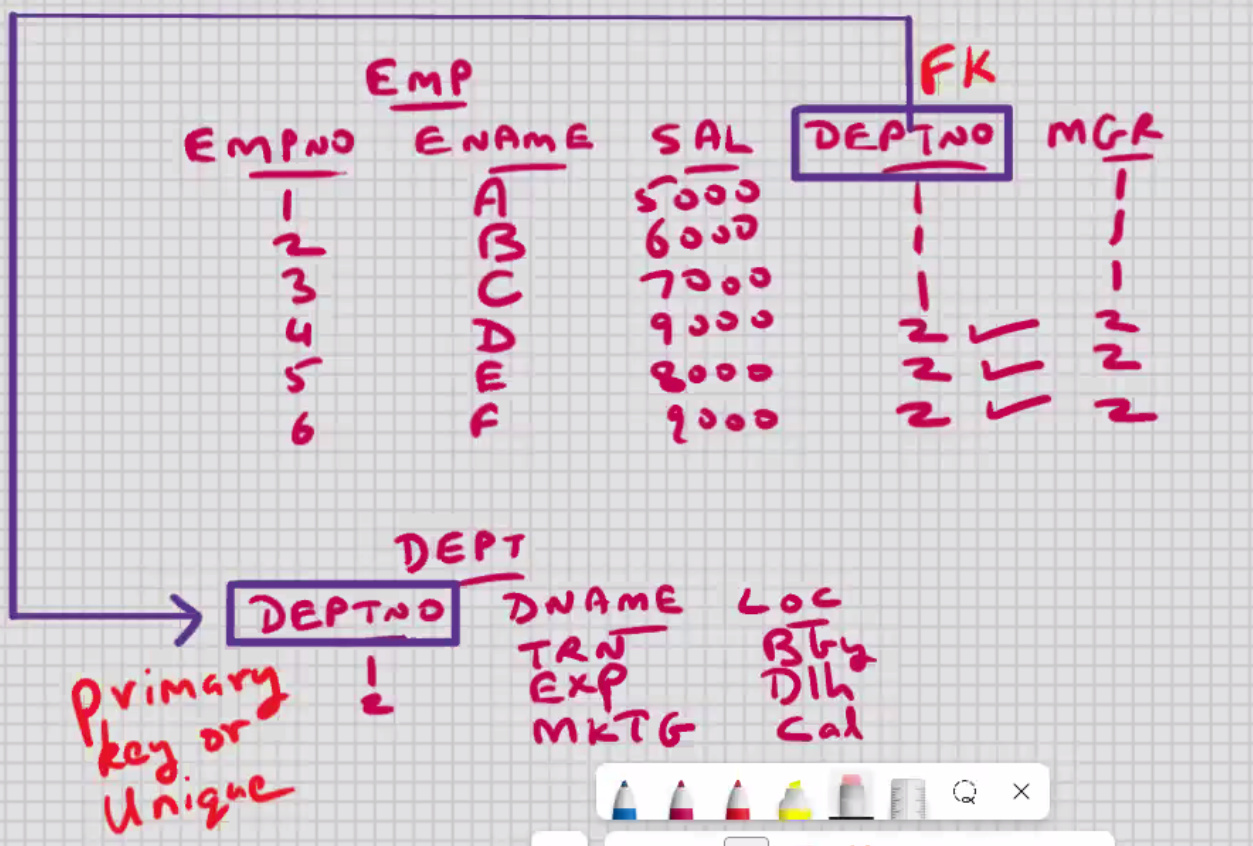 FK
EMP
EMPNO ENAME SAL DEPTNO MGR
1 A 5000 1 1
2 B 6000 1 1
3 C 7000 1 1
4 D 9000 2 2
5 E 8000 2 2
6 F 9000 2 2
DEPT
DEPTNO DNAME LOC
1 TRN
2 EXP Dlh
MKTG Cal
Primary
key or
Unique